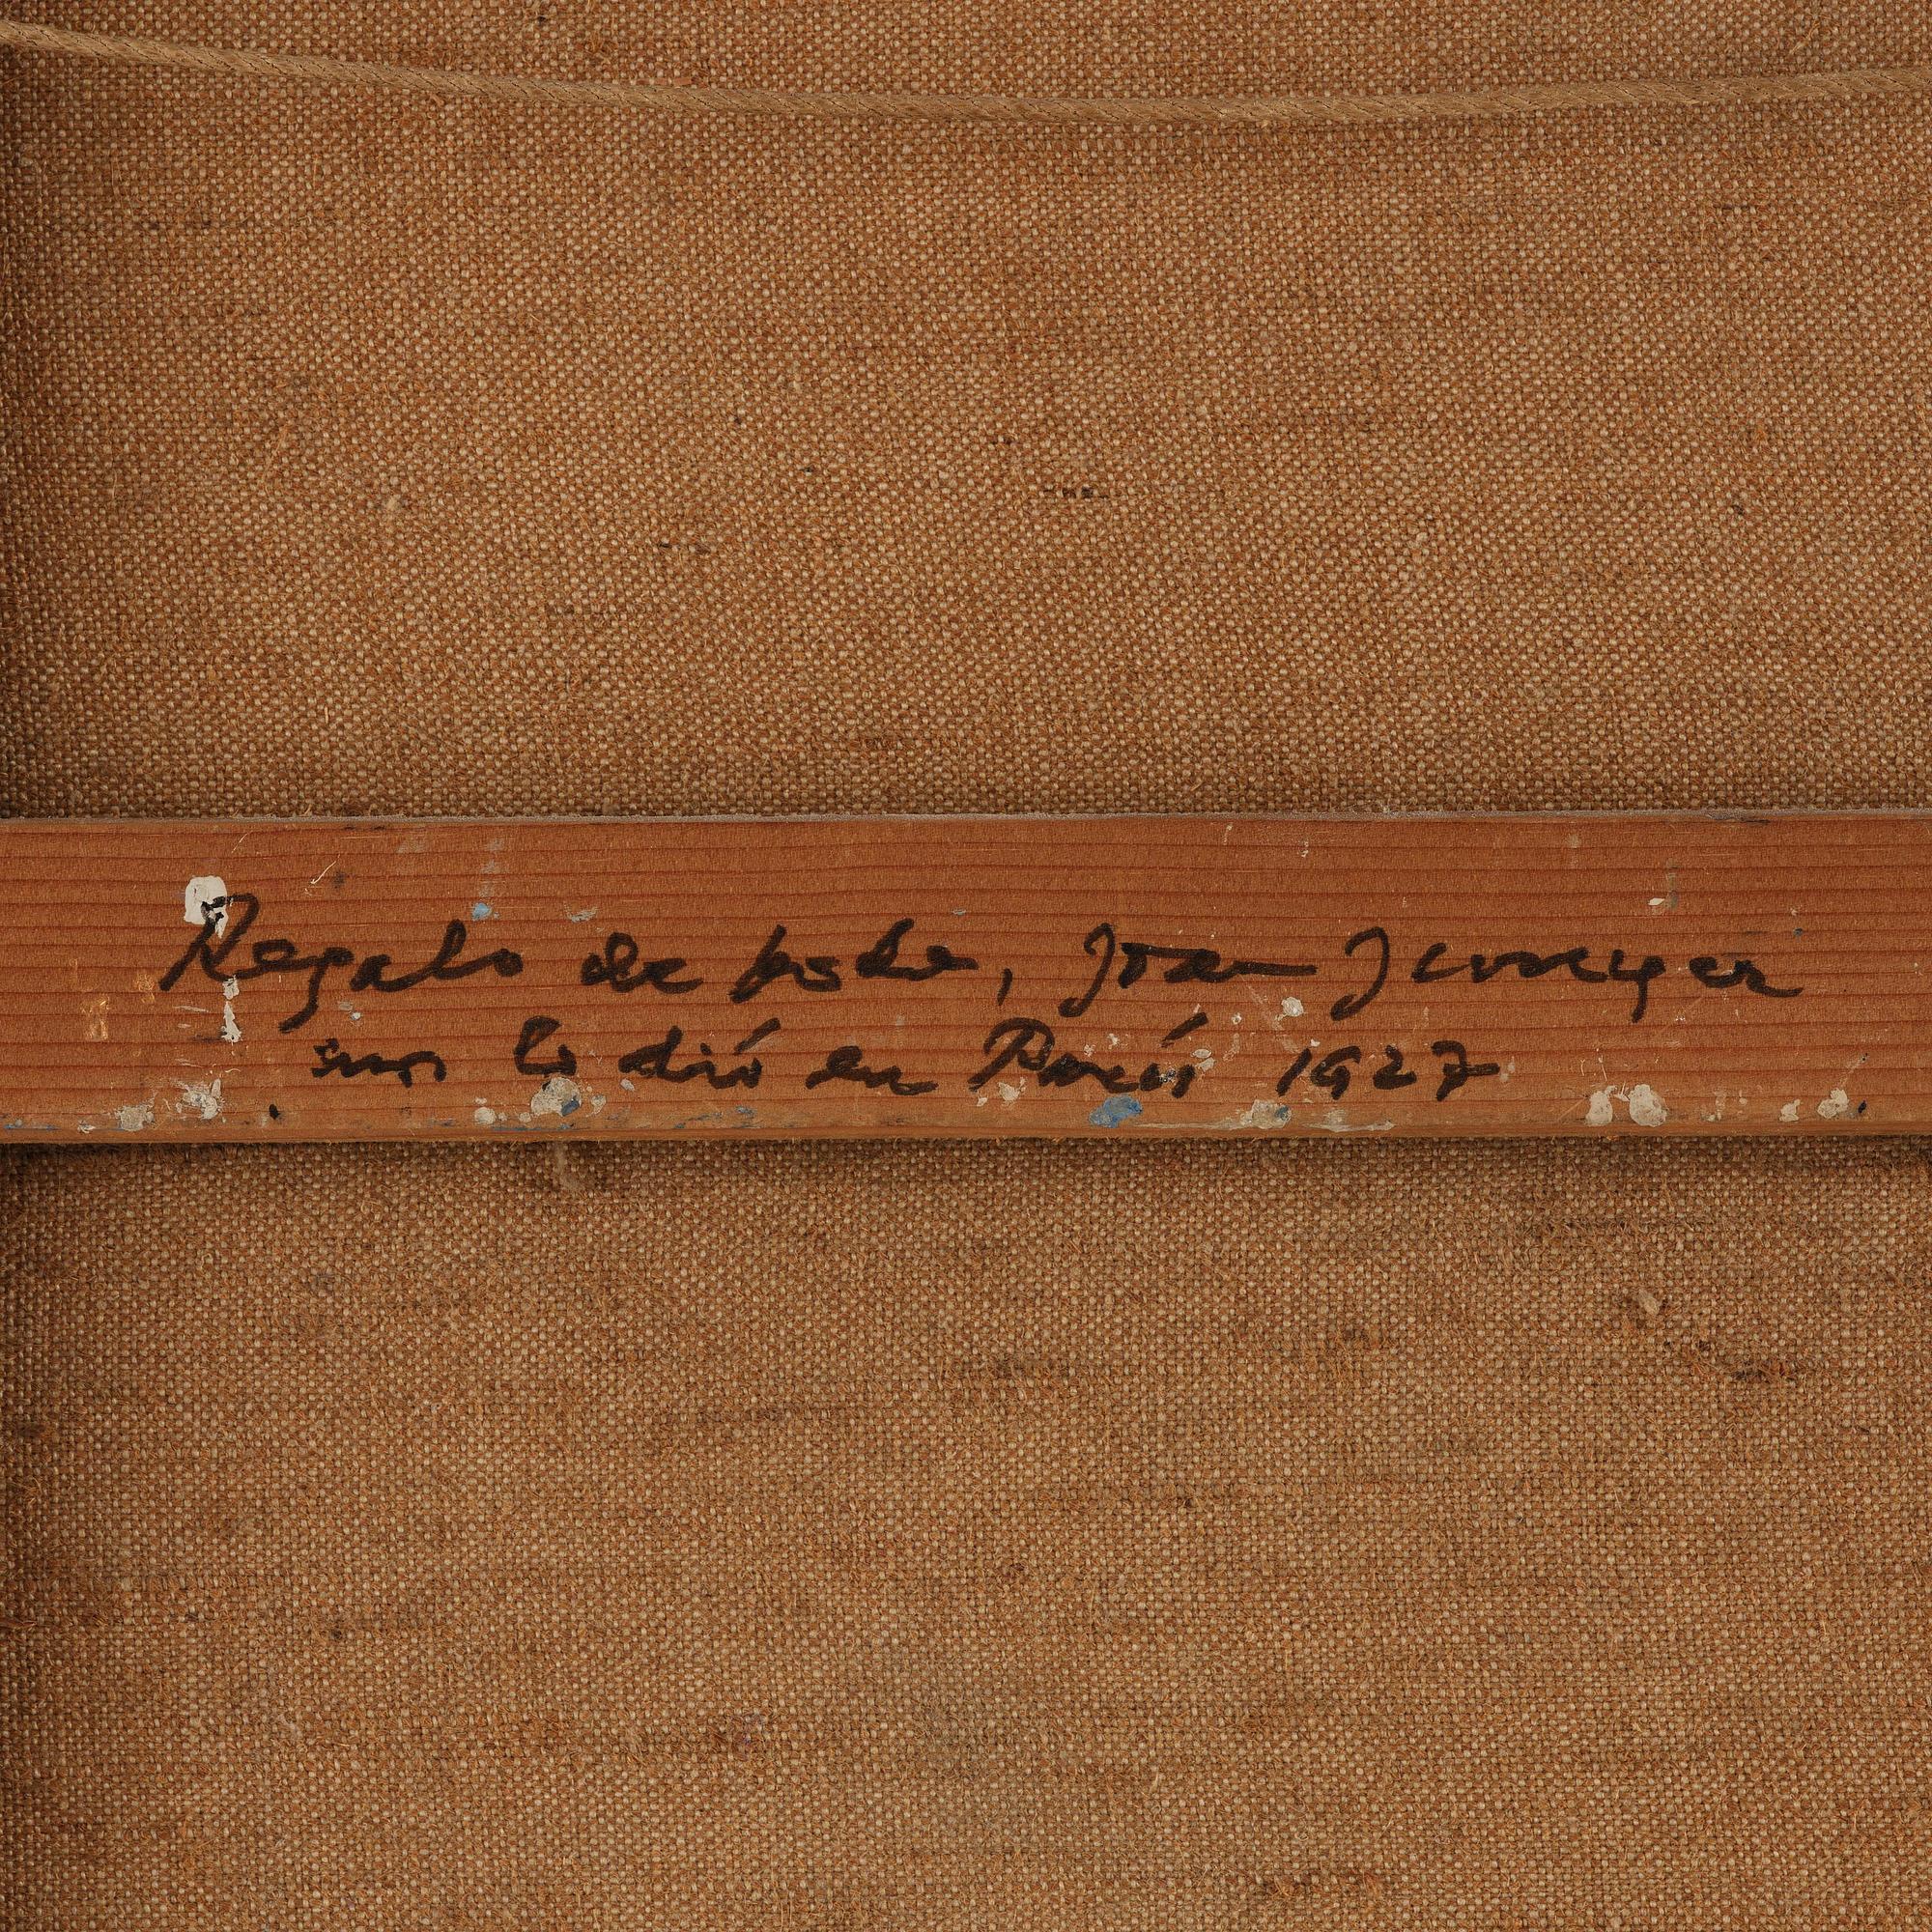 Regalo de boda, Joan Junyer
nos lo dió en París 1927